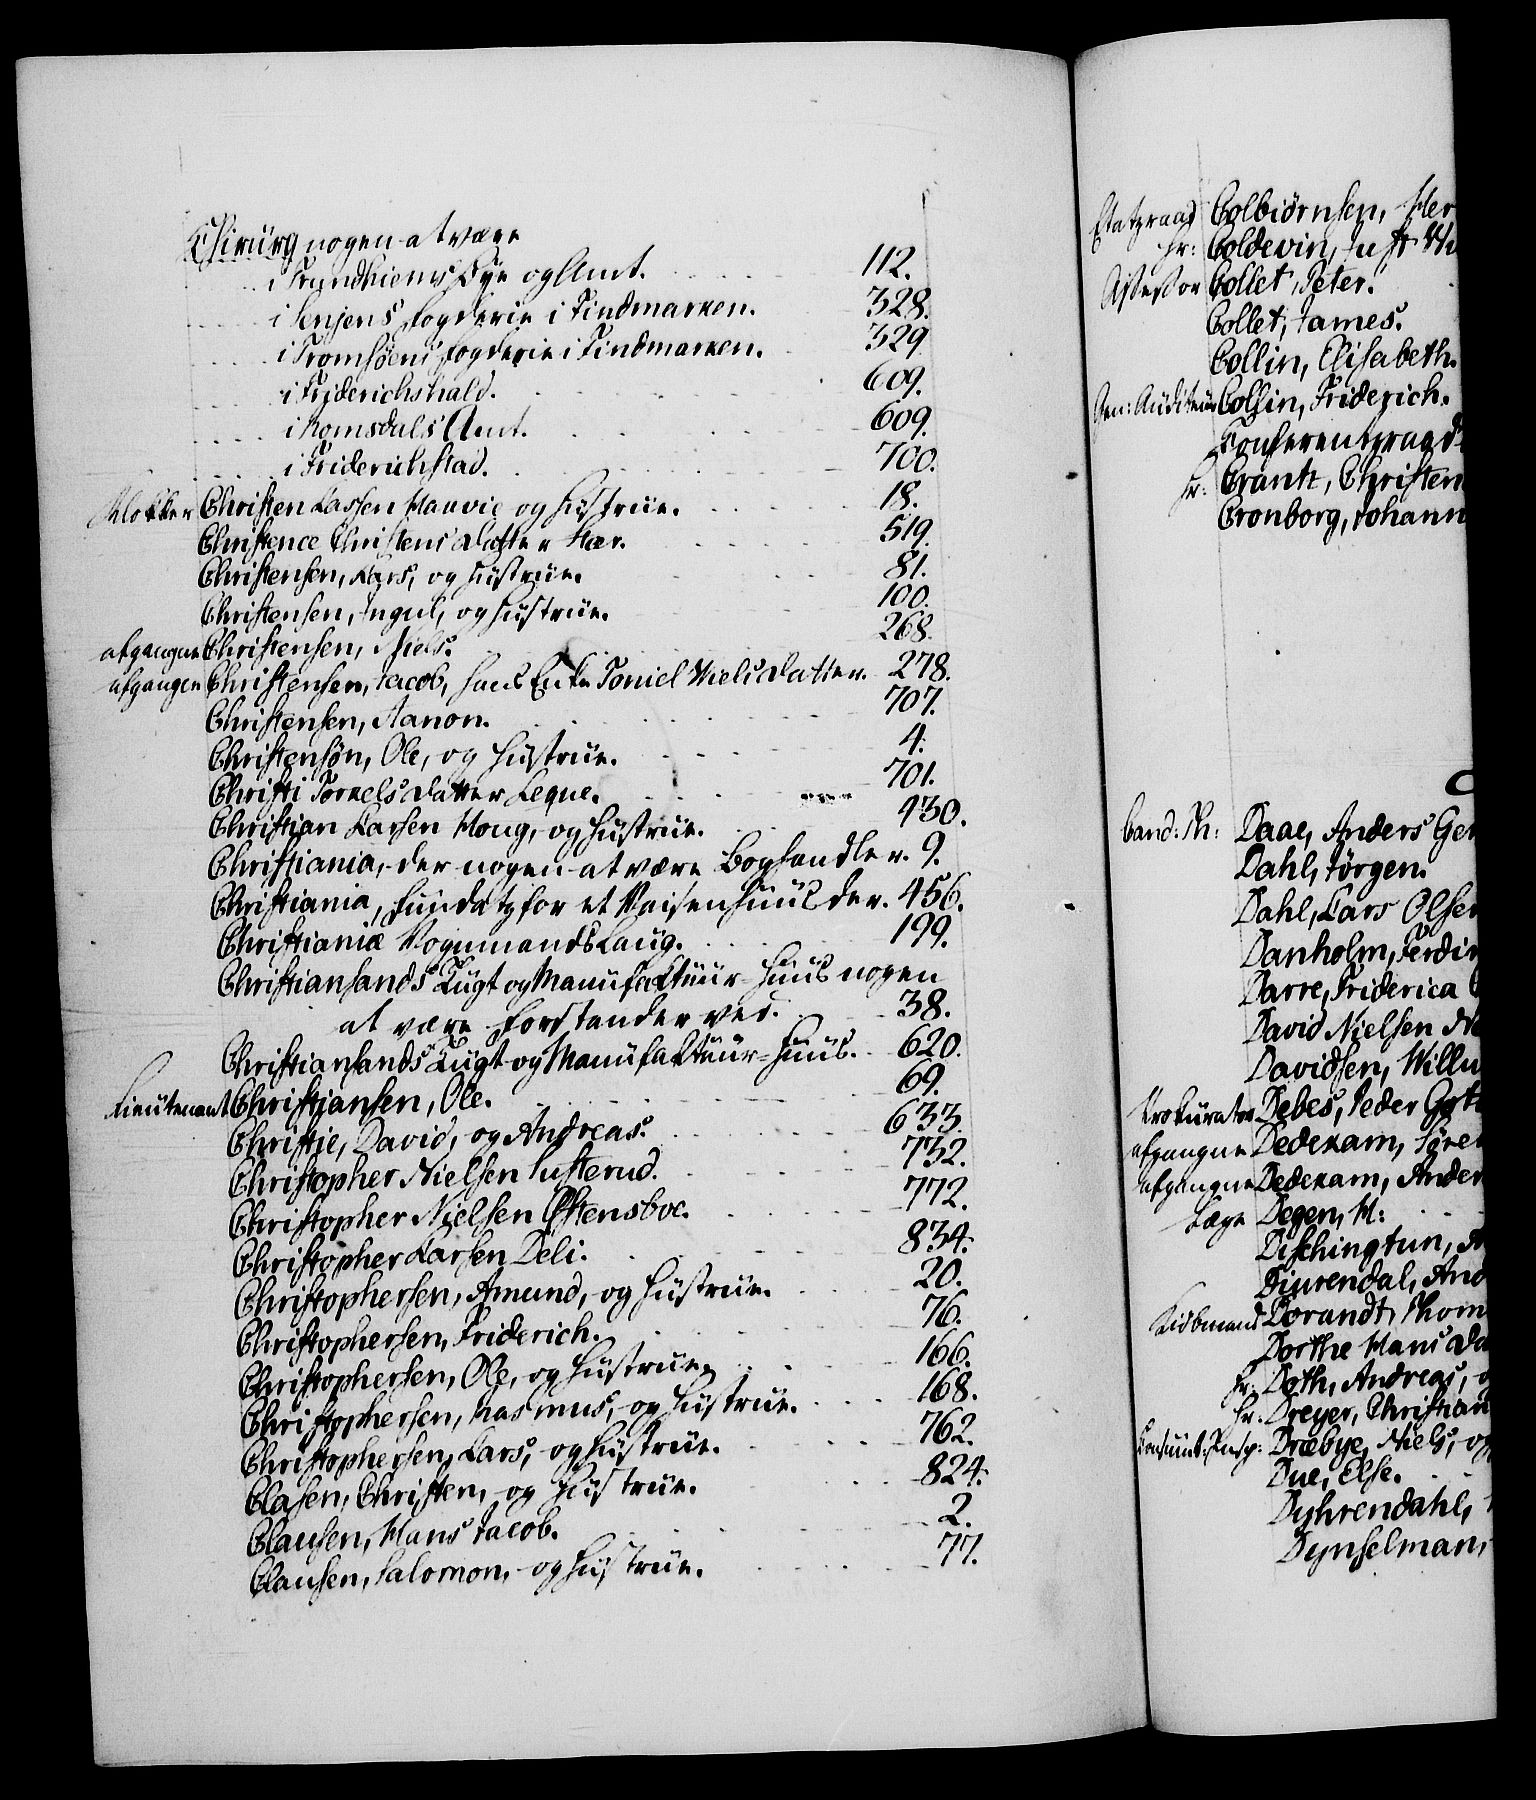 Chirurg nogen at være
i Trundhiems Bye og Amt. 112.
i Senjens Fogderie i Findmarken. 328.
i Tromsøens Fogderie i Findmarken. 329.
i Friderichshald. 609.
i Romsdals Amt. 609.
i Friderichstad. 700.
Klokker Christen Lassen Hauvig og Hustrue. 18.
Christence Christens Datter Kær. 519.
Christensen, Lars, og Hustrue. 81.
Christensen, Ingul, og Hustrue. 100.
afgangne Christensen, Niels. 268.
afgangen Christensen, Jacob, hans Enke Toniel Niels Datter. 278.
Christensen, Aanon. 707.
Christensøn, Ole, og Hustrue. 4.
Christi Torkels Datter Leque. 701.
Christian Larsen Houg, og Hustrue. 430.
Christiania, der nogen at være Boghandler. 9.
Christiania, Fundatz for et Vaisenhuus der. 456.
Christianiæ Vognmands Laug. 199.
Christiansands Tugt og Manufaktuur-Huus nogen
at være Forstander ved. 38.
Christiansands Tugt- og Manufaktuur-Huus. 620.
Lieutenant Christiansen, Ole. 69.
Christie, David, og Andreas. 633.
Christopher Nielsen Susterud. 732.
Christopher Nielsen Østensboe. 772.
Christopher Larsen Deli. 834.
Christophersen, Amund, og Hustrue. 20.
Christophersen, Friderich. 76.
Christophersen, Ole, og Hustrue. 166.
Christophersen, Rasmus, og Hustrue. 168.
Christophersen, Lars, og Hustrue. 762.
Clasen, Christen, og Hustrue. 824.
Clausen, Hans Jacob. 2.
Clausen, Salomon, og Hustrue. 77.
Etatzraad Colbiørnsen,
Hr: Coldevin,
Assessor Collet, Peter.
Collet, James.
Collin, Elisabeth.
Gen: Auditeur Collin, Friderich.
Conferentzraad
Hr: Crantz, Christen
Cronborg, Johann
Cand: Ph: Daae, Anders
Dahl, Jørgen.
Dahl, Lars Olsen
Danholm, Ferdin
Darre, Friderica
David Nielsen
Davidsen, Willu
Prokurator Debes, Peder
afgangne Dedekam, Søren
afgangne Dedekam, Ander
Læge Degen, H:
Dischingtun,
Diurendal, And
Kiøbmand Dorandt, Thom
Dorthe Hans Da
Hr. Doth, Andreas,
Hr. Dreyer, Christian
Dræbye, Niels, og
Due, Else.
Dyhrendahl,
Dynselman,